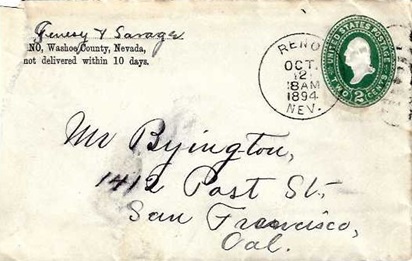 Genesy & Savage
NO, Washoe County, Nevada,
not delivered within 10 days.
RENO
OCT.
12
8AM
1894
NEV.
UNITED STATES POSTAGE
TWO 2 CENTS
Mr Byington,
1412 Post St,
San Francisco,
Cal.